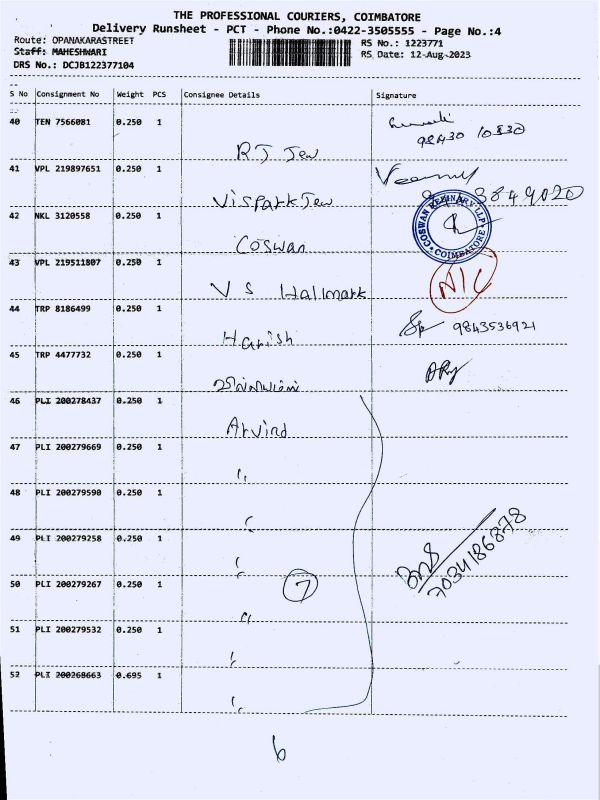 THE PROFESSIONAL COURIERS, COIMBATORE
Delivery Runsheet - PCT - Phone No.:0422-3505555 - Page No.:4
Route: OPANAKARASTREET RS No.: 1223771
Staff: MAHESHWARI RS Date: 12-Aug-2023
DRS No.: DCJB122377104
S No Consignment No Weight PCS Consignee Details Signature
40 TEN 7566081 0.250 1 RJ Jew 98430 10830
41 VPL 219897651 0.250 1 Vispark Jew 3849020
42 NKL 3120558 0.250 1 Coswan COSWAN REFINARY LLP COIMBATORE
43 VPL 219511807 0.250 1 VS Hallmark N/C
44 TRP 8186499 0.250 1 Harish 9843536921
45 TRP 4477732 0.250 1
46 PLI 200278437 0.250 1 Arvind
47 PLI 200279669 0.250 1 "
48 PLI 200279590 0.250 1 "
49 PLI 200279258 0.250 1 " 7034186878
50 PLI 200279267 0.250 1 " 7
51 PLI 200279532 0.250 1 "
52 PLI 200268663 0.695 1 "
6